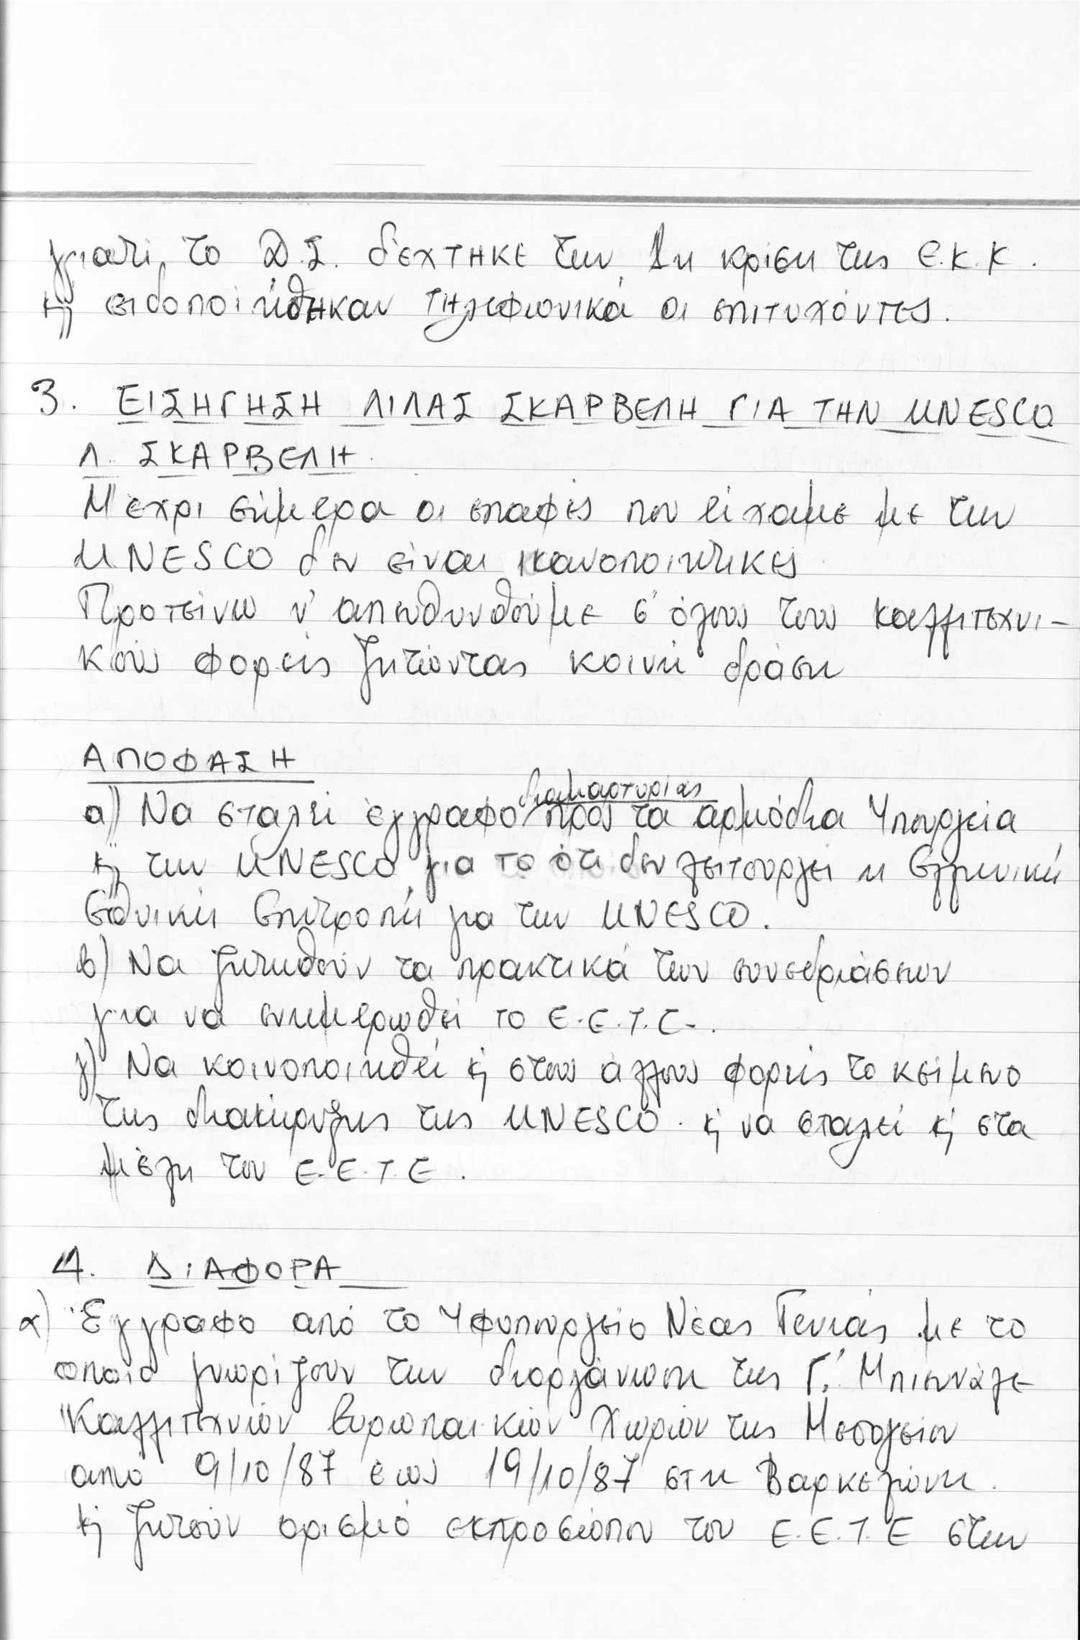 γιατί το Δ.Σ. δέχτηκε την 1η κρίση της Ε.Κ.Κ.
κ) ειδοποιήθηκαν τηλεφωνικά οι επιτυχόντες.
3. ΕΙΣΗΓΗΣΗ ΛΙΛΑΣ ΣΚΑΡΒΕΛΗ ΓΙΑ ΤΗΝ UNESCO
Λ. ΣΚΑΡΒΕΛΗ.
Μέχρι σήμερα οι επαφές που είχαμε με την
UNESCO δεν είναι ικανοποιητικές
Προτείνω ν' απευθυνθούμε σ' όλους τους καλλιτεχνι-
κούς φορείς ζητώντας κοινή δράση
ΑΠΟΦΑΣΗ
διαμαρτυρίας
α) Να σταλεί έγγραφο προς τα αρμόδια Υπουργεία
κ) την UNESCO για το ότι δεν λειτουργεί η Ελληνική
Εθνική Επιτροπή για την UNESCO.
β) Να ζητηθούν τα πρακτικά των συνεδριάσεων
για να ενημερωθεί το Ε.Ε.Τ.Ε.
γ) Να κοινοποιηθεί κ) στους άλλους φορείς το κείμενο
της διακήρυξης της UNESCO κ) να σταλεί κ) στα
μέλη του Ε.Ε.Τ.Ε.
4. ΔΙΑΦΟΡΑ
α) Έγγραφο από το Υφυπουργείο Νέας Γενιάς με το
οποίο γνωρίζουν την διοργάνωση της Γ' Μπιενάλε
Καλλιτεχνών Ευρωπαικών Χωρών της Μεσογείου
από 9/10/87 έως 19/10/87 στη Βαρκελώνη.
κ) ζητούν ορισμό εκπροσώπου του Ε.Ε.Τ.Ε στην